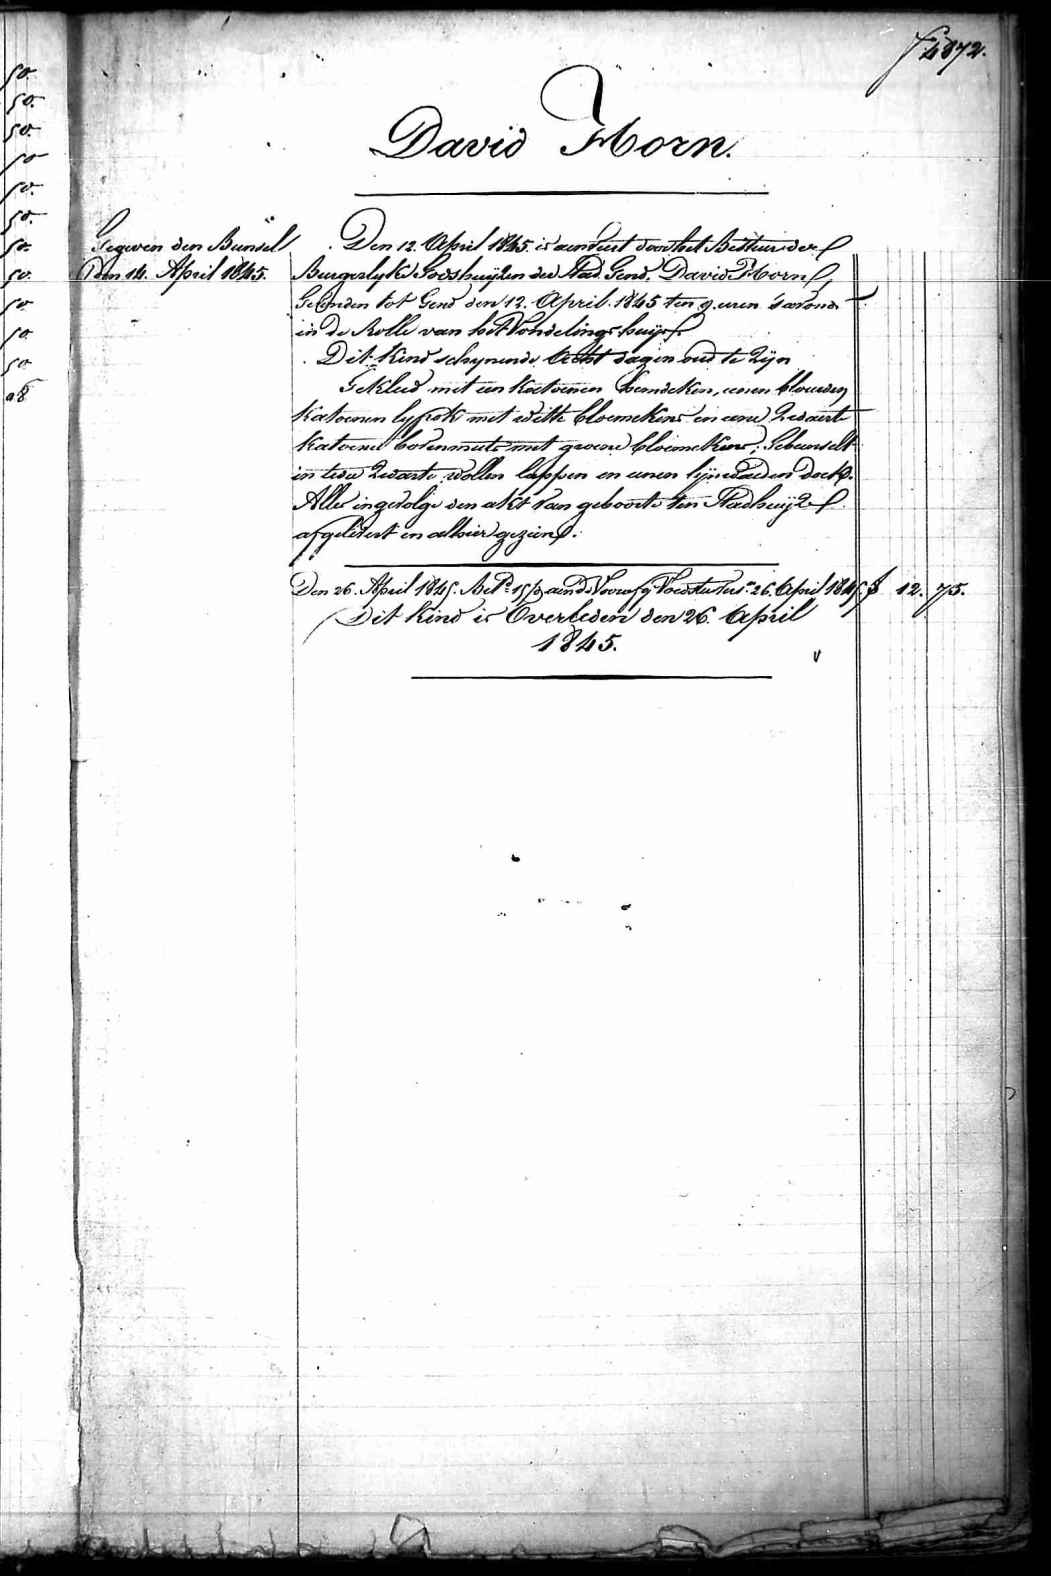 f 4872.
50.
50.
50.
50
50.
50.
50.
50.
50
50.
50
08
David Horn.
Gegeven den Bunsel
den 14. April 1845.
Den 12. April 1845. is aenveert door het Bestuur der
Burgerlyke Godshuyzen der Stad Gend. David Horn,
Gevonden tot Gend den 12. April 1845 ten 9 uren 's avonds
in de Rolle van het Vondelingshuys
Dit Kind schynende Acht dagen oud te Zijn
Gekleed met een katoenen hemdeken, eenen blouwen
katoenen lyfrok met witte bloemekens en eene Zwarte
katoene bovenmuts met groene bloemekens; Gebunselt
in twee Zwarte wollen lappen en eenen lijnwaeden doek.
Alles ingevolge den akt van geboorte ten Stadhuijze
afgelevert en alhier gezien.
Den 26. April 1845. Betd 15 aen de Voedster 26. April 1845. f 12. 75.
Dit kind is Overleden den 26. April
1845.